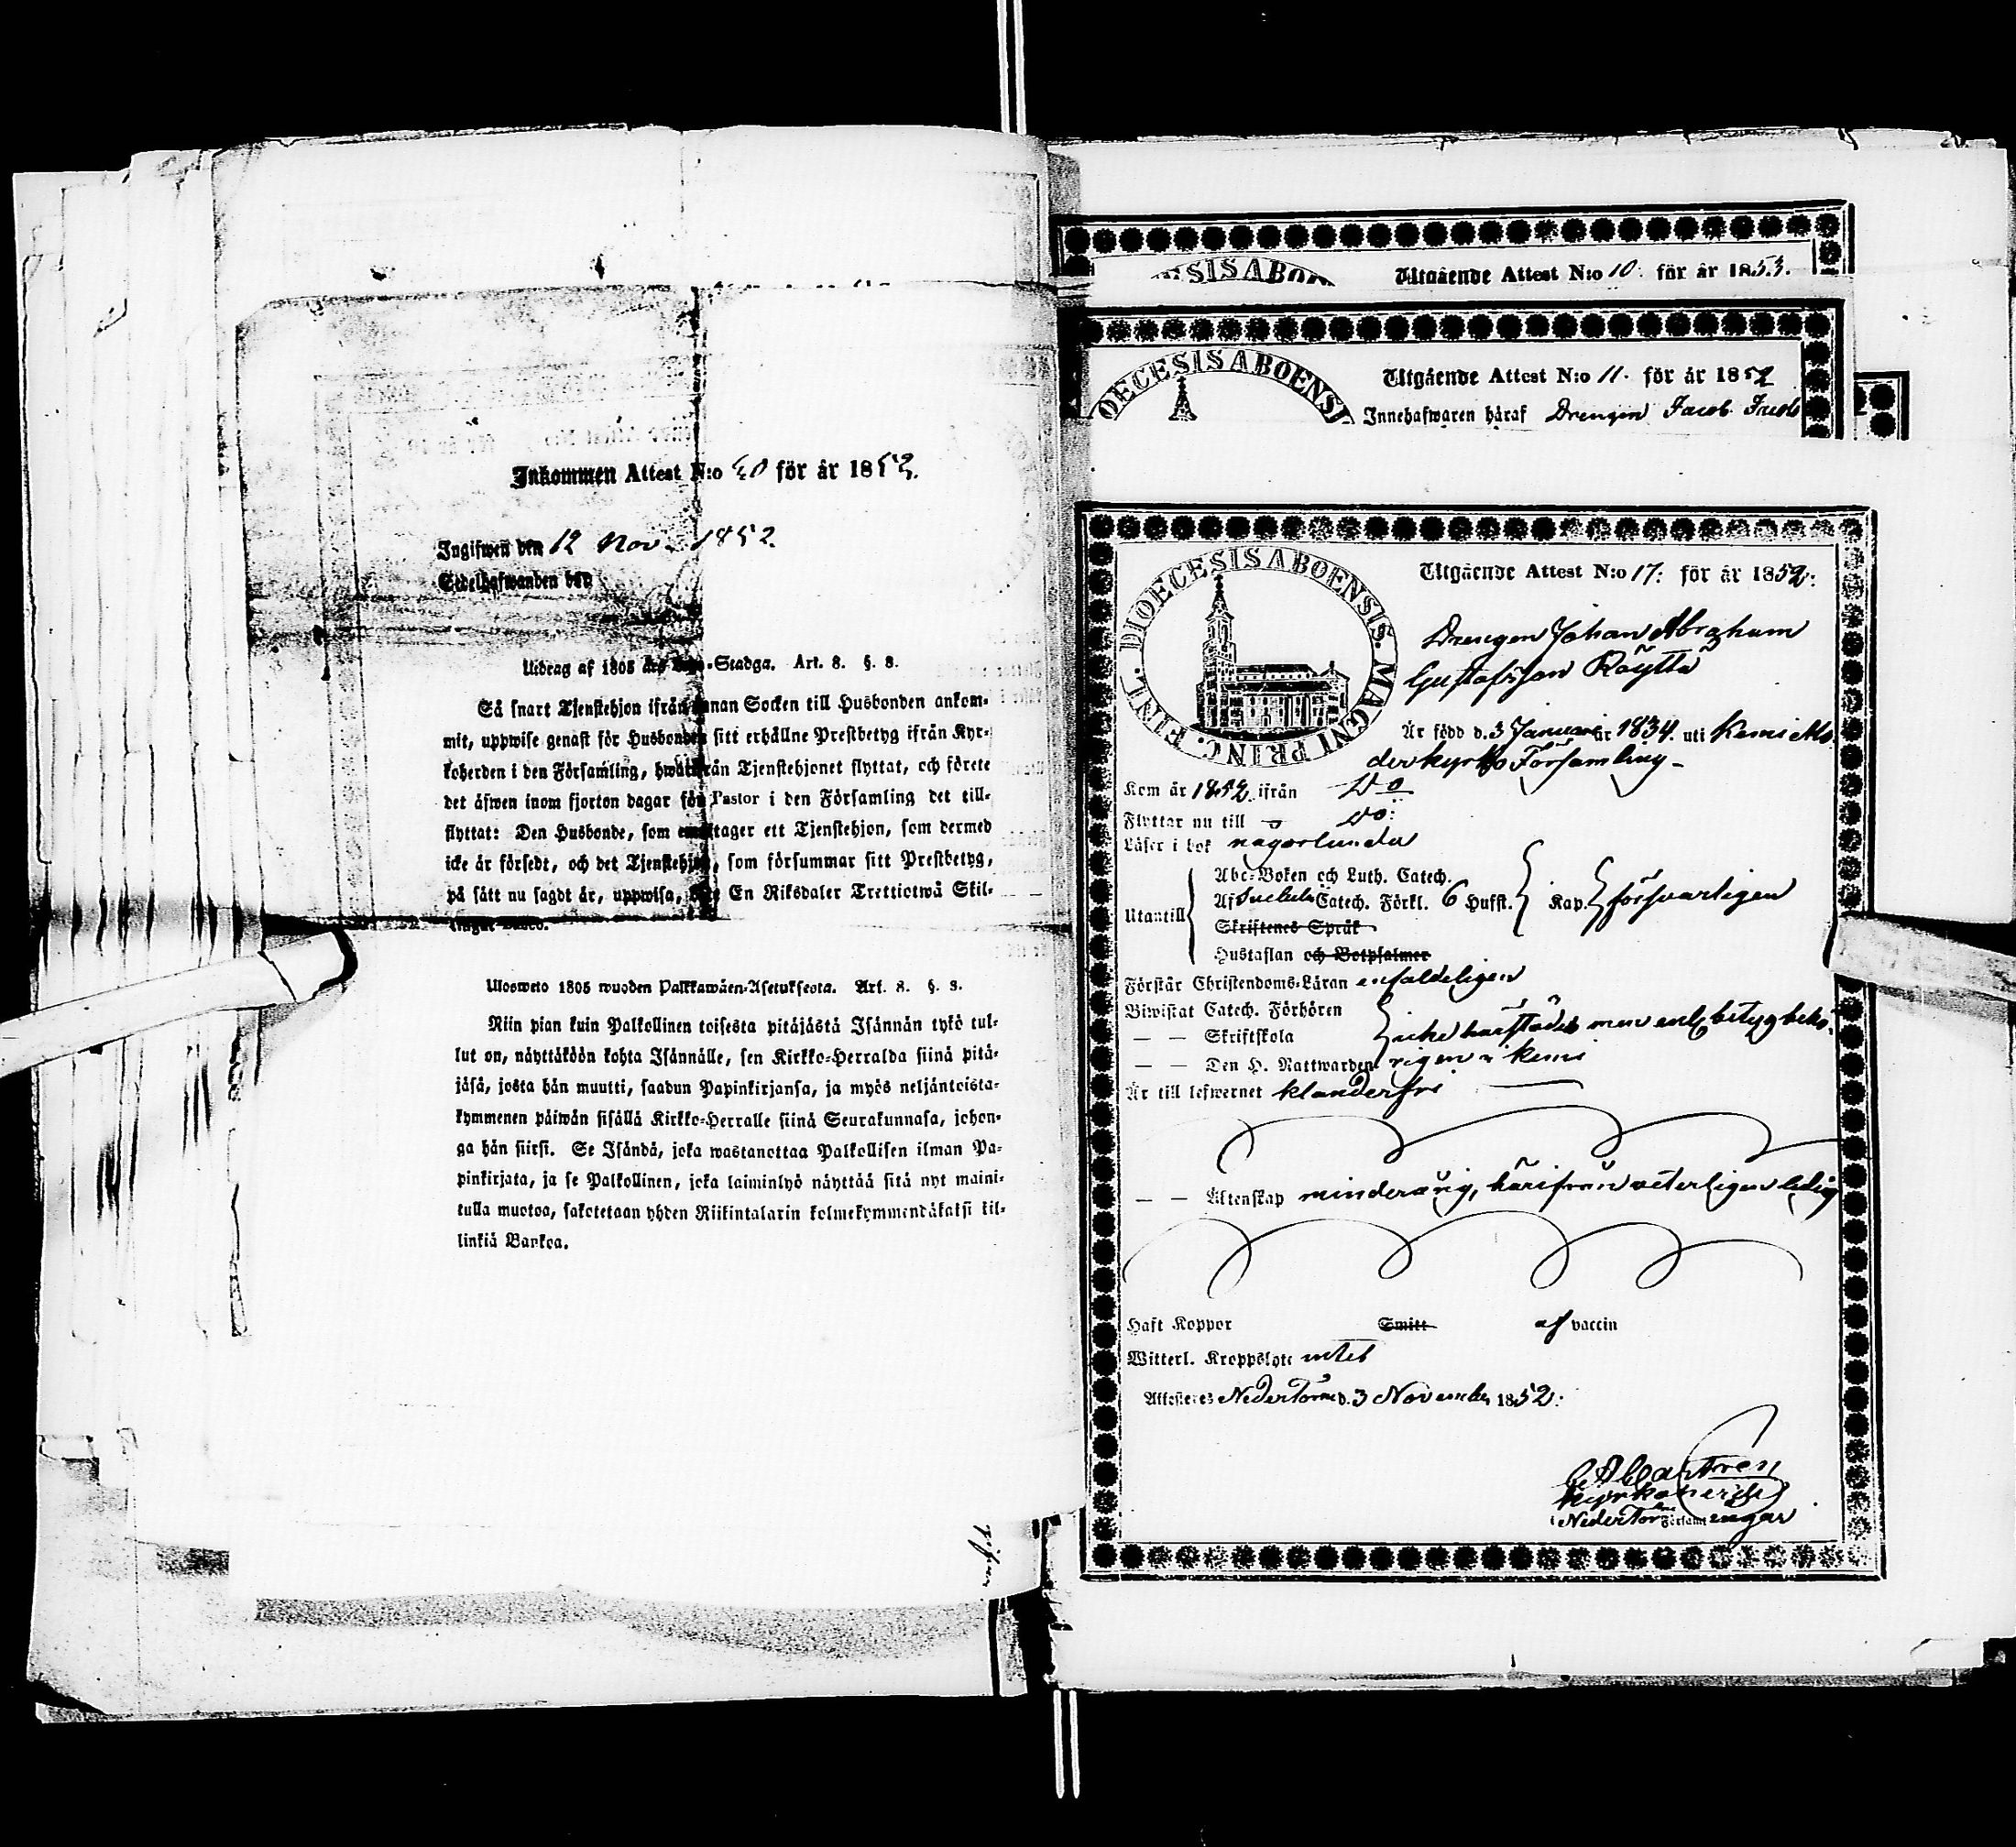 Inkommen Attest N:o 40 för år 1852.
Ingifwen den 12 Nov. 1852.
Sedelhafwanden bör
Utdrag af 1805 års Lego-Stadga. Art. 8. §. 8.
Så snart Tjenstehjon ifrån annan Socken till Husbonden ankom-
mit, uppwise genast för Husbonden sitt erhållne Prestbetyg ifrån Kyr-
koherden i den Församling, hwarifrån Tjenstehjonet flyttat, och förete
det äfwen inom fjorton dagar för Pastor i den Församling det till-
flyttat: Den Husbonde, som emottager ett Tjenstehjon, som dermed
icke är försedt, och det Tjenstehjon, som försummar sitt Prestbetyg,
på sätt nu sagdt är, uppwisa, En Riksdaler Trettiotwå Skil-
lingar Banco.
Ulosweto 1805 wuoden Palkkawäen-Asetuksesta. Art. 8. §. 8.
Niin pian kuin Palkollinen toisesta pitäjästä Isännän tykö tul-
lut on, näyttäköön kohta Isännälle, sen Kirkko-Herralda siinä pitä-
jäsä, josta hän muutti, saadun Papinkirjansa, ja myös neljäntoista-
kymmenen päiwän sisällä Kirkko-Herralle siinä Seurakunnasa, johon-
ga hän siirsi. Se Isändä, joka wastanottaa Palkollisen ilman Pa-
pinkirjata, ja se Palkollinen, joka laiminlyö näyttää sitä nyt maini-
tulla muotoa, sakotetaan yhden Riikintalarin kolmekymmendäkaksi kil-
linkiä Bankoa.
SIS ABO
Utgående Attest N:o 10. för år 1853.
OECESIS ABOENSI
Utgående Attest N:o 11. för år 1852
Innehafwaren häraf Drengen Jacob Jacob
DIOECESIS ABOENSIS. MAGNI PRINC. FINL.
Utgående Attest N:o 17: för år 1852:
Drengen Johan Abraham
Gustafsson Röyttä
Är född d. 3 Januari år 1834. uti Kemi Mo
derkyrko Församling-
Kom år 1852 ifrån Do
Flyttar nu till Do:
Läser i bok någorlunda
Utantill
Abc-Boken och Luth. Catech.
Af Svebelii Catech. Förkl. 6 Hufst. Kap. försvarligen
Skriftenes Språk
Hustaflan och Botpsalmer
Förstår Christendoms-Läran enfaldeligen
Biwistat Catech. Förhören
— — Skriftskola icke härstädes men enl. betyg behö-
— — Den H. Nattwarden rigen i Kemi
Är till lefwernet klanderfri
— — Äktenskap minderårig, härifrån veterligen ledig
Haft Koppor Smitt af vaccin
Witterl. Kroppslyte intet
Attesteres NederTorneå d. 3 November 1852:
Castren
Kyrkoherde
NederTorneå Församlingar